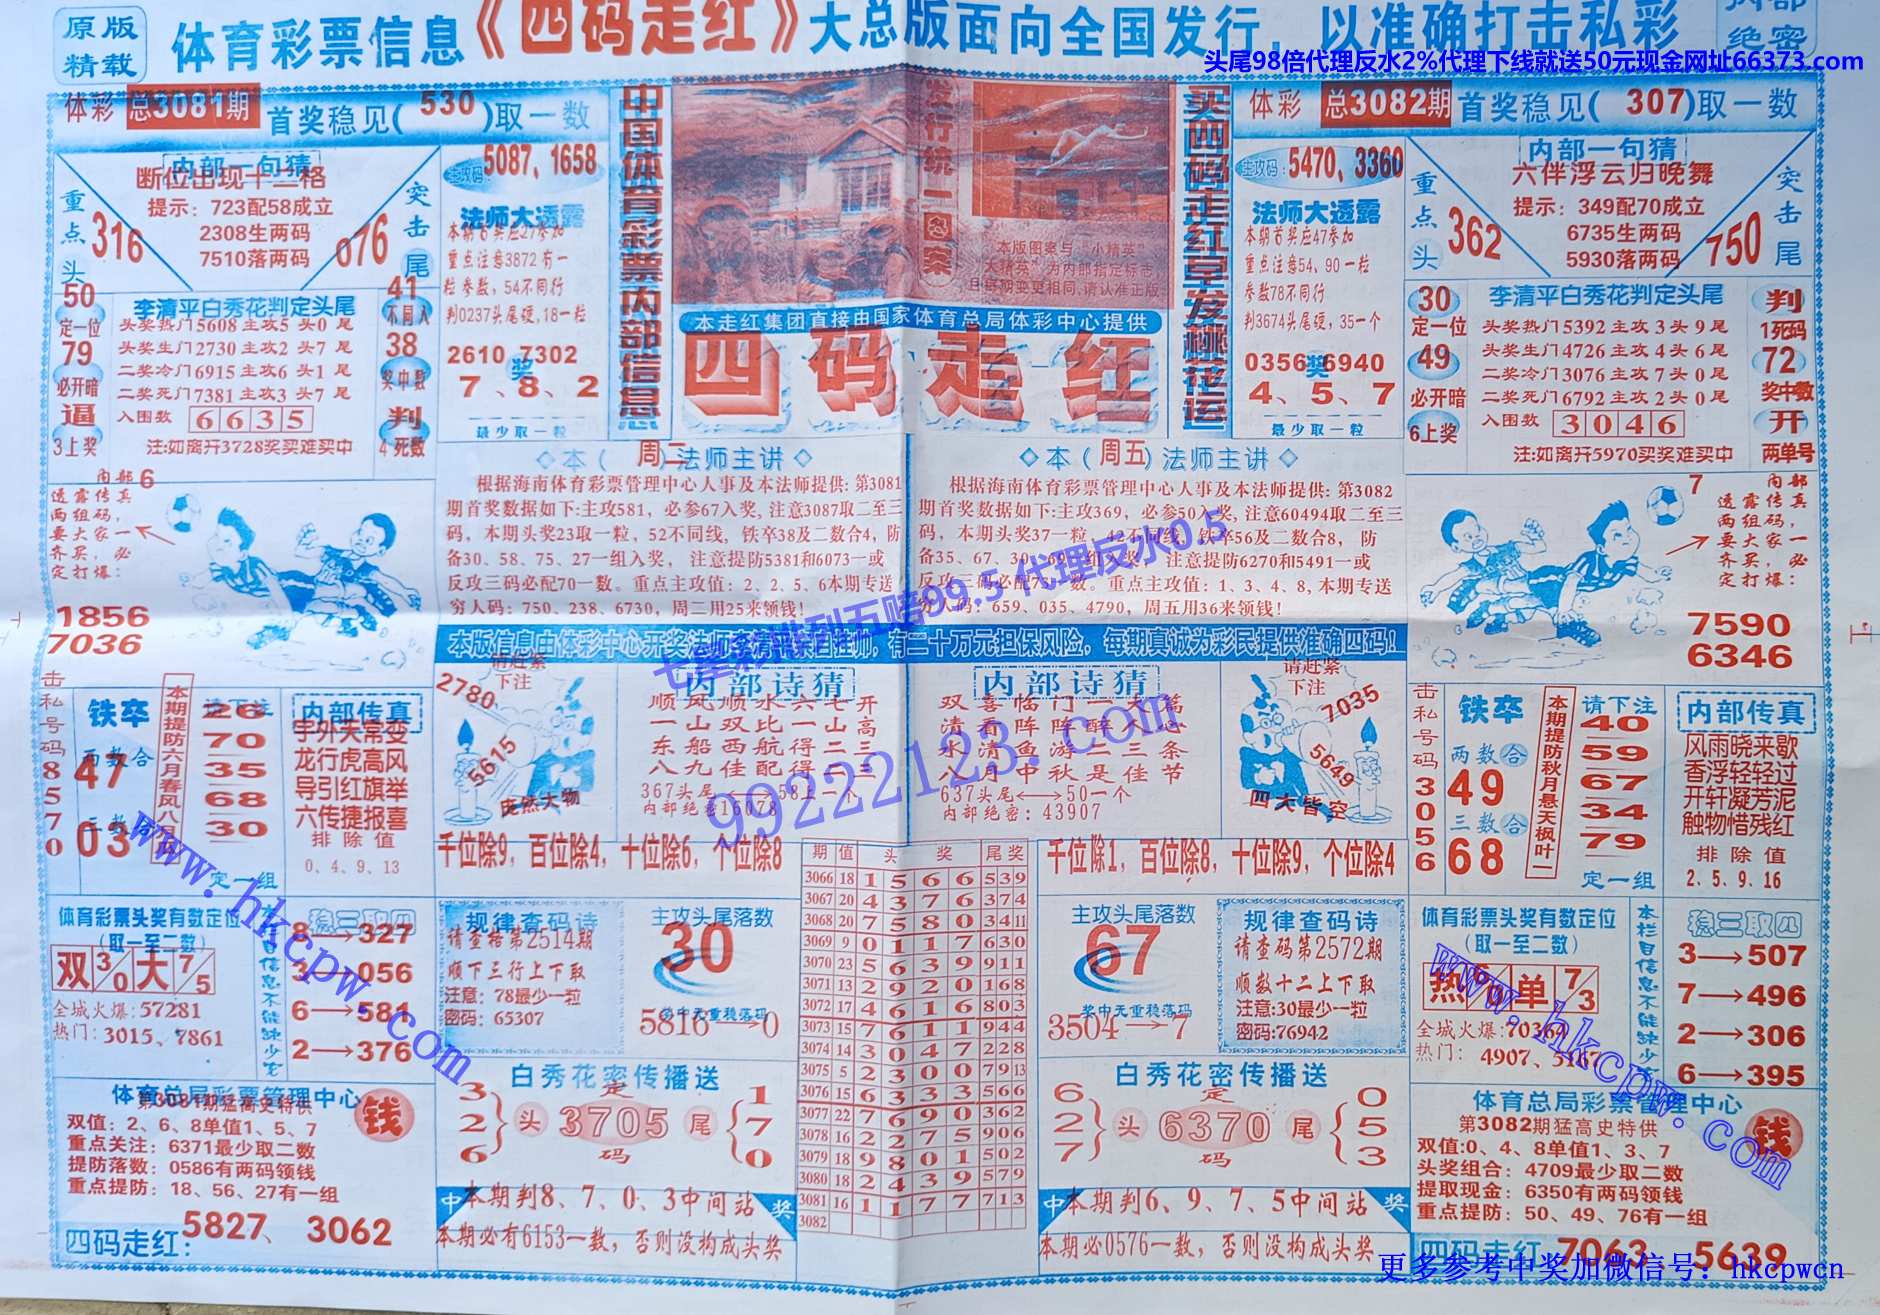 原版
精载
体育彩票信息《四码走红》大总版面向全国发行，以准确打击私彩
绝密
头尾98倍代理反水2%代理下线就送50元现金网址66373.com
体彩 总3081期 首奖稳见( 530 )取一数
内部一句猜
断位出现十二格
提示：723配58成立
2308生两码
7510落两码
重点头
316
突击尾
076
主攻码: 5087、1658
法师大透露
本期首奖应27参加
重点注意3872有一
粒参数，54不同行
判0237头尾硬，18一粒
2610 7302
奖
7、8、2
最少取一粒
50
定一位
79
必开暗
逼
3上奖
李清平白秀花判定头尾
头奖热门5608主攻5头0尾
头奖生门2730主攻2头7尾
二奖冷门6915主攻6头1尾
二奖死门7381主攻3头7尾
入围数 6635
注:如离开3728奖买难买中
41
不同入
38
奖中数
判
4死数
中国体育彩票内部信息
发行统一图案
本版图案与“小精英”
大精英”为内部指定标志
且每期变更相同,请认准正版
本走红集团直接由国家体育总局体彩中心提供
四码走红
买四码走红早发桃花运
体彩 总3082期 首奖稳见( 307)取一数
主攻码: 5470、3360
法师大透露
本期首奖应47参加
重点注意54、90一粒
参数78不同行
判3674头尾硬，35一个
0356 6940
奖
4、5、7
最少取一粒
内部一句猜
六伴浮云归晚舞
提示：349配70成立
6735生两码
5930落两码
重点头
362
突击尾
750
30
定一位
49
必开暗
6上奖
李清平白秀花判定头尾
头奖热门5392主攻3头9尾
头奖生门4726主攻4头6尾
二奖冷门3076主攻7头0尾
二奖死门6792主攻2头0尾
入围数 3046
注:如离开5970买奖难买中
判
1死码
72
奖中数
开
两单号
内部 6
透露传真
两组码，
要大家一
齐买，必
定打爆：
1856
7036
◇本( 周二 )法师主讲◇
根据海南体育彩票管理中心人事及本法师提供: 第3081
期首奖数据如下:主攻581，必参67入奖, 注意3087取二至三
码，本期头奖23取一粒，52不同线，铁卒38及二数合4，防
备30、58、75、27一组入奖， 注意提防5381和6073一或
反攻三码必配70一数。重点主攻值：2、2、5、6本期专送
穷人码：750、238、6730，周二用25来领钱!
◇本( 周五 )法师主讲◇
根据海南体育彩票管理中心人事及本法师提供: 第3082
期首奖数据如下:主攻369，必参50入奖, 注意60494取二至三
码，本期头奖37一粒，42不同线，铁卒56及二数合8， 防
备35、67、30、69一组入奖， 注意提防6270和5491一或
反攻三码必配73一数。重点主攻值：1、3、4、8, 本期专送
穷人码：659、035、4790，周五用36来领钱!
7 内部
透露传真
两组码，
要大家一
齐买，必
定打爆：
7590
6346
七星彩排列五赔99.5 代理反水0.5
本版信息由体彩中心开奖法师李清平亲自挂帅，有二十万元担保风险，每期真诚为彩民提供准确四码!
击私号码85770
铁卒
两数合
47
三数合
03
本期提防六月春风八月瓜
请下注
26
70
35
68
30
定一组
内部传真
宇外天常变
龙行虎高风
导引红旗举
六传捷报喜
排除值
0、4、9、13
请赶紧
下注
2780
5615
庞然大物
内部诗猜
顺风顺水六七开
一山双比一山高
东船西航得二三
八九佳配得二三
367头尾⟷58上一个
内部绝密16078
内部诗猜
双喜临门一大篇
清看阵阵醉人心
水清鱼游二三条
八月中秋是佳节
637头尾⟷50一个
内部绝密：43907
99222123.com
请赶紧
下注
7035
5649
四大皆空
击私号码303056
铁卒
两数合
49
三数合
68
本期提防秋月悬天枫叶一
请下注
40
59
67
34
79
定一组
内部传真
风雨晓来歇
香浮轻轻过
开轩凝芳泥
触物惜残红
排除值
2、5、9、16
千位除9，百位除4，十位除6，个位除8
千位除1，百位除8，十位除9，个位除4
期 值 头 奖 尾奖
3066 18 1 5 6 6 539
3067 20 4 3 7 6 374
3068 20 7 5 8 0 3411
3069 9 0 1 1 7 630
3070 23 5 6 3 9 911
3071 13 2 9 2 0 168
3072 17 4 6 1 6 803
3073 15 7 6 1 1 944
3074 14 3 0 4 7 228
3075 5 2 3 0 0 7913
3076 15 6 3 3 3 566
3077 22 7 6 9 0 362
3078 16 2 2 7 5 906
3079 18 9 8 0 1 502
3080 18 2 4 3 9 579
3081 16 1 1 7 7 713
3082
体育彩票头奖有数定位
(取一至二数)
双3/0大7/5
全城火爆：57281
热门：3015、7861
本栏目信息不能缺少它
稳三取四
8→327
3→056
6→581
2→376
规律查码诗
请查码第2514期
顺下三行上下取
注意：78最少一粒
密码：65307
主攻头尾落数
30
奖中无重稳落码
5816→0
主攻头尾落数
67
奖中无重稳落码
3504→7
规律查码诗
请查码第2572期
顺数十二上下取
注意:30最少一粒
密码:76942
体育彩票头奖有数定位
(取一至二数)
热6/0单7/3
全城火爆：70364
热门： 4907、5167
本栏目信息不能缺少它
稳三取四
3→507
7→496
2→306
6→395
体育总局彩票管理中心
第3081期猛高史特供
双值：2、6、8单值1、5、7
重点关注：6371最少取二数
提防落数：0586有两码领钱
重点提防：18、56、27有一组
钱
四码走红: 5827、3062
白秀花密传播送
326} 头 定 3705 码 尾 {170
中 本期判8、7、0、3中间站 奖
本期必有6153一数，否则没构成头奖
白秀花密传播送
627} 头 定 6370 码 尾 {053
中 本期判6、9、7、5中间站 奖
本期必0576一数，否则没构成头奖
体育总局彩票管理中心
第3082期猛高史特供
双值:0、4、8单值1、3、7
头奖组合：4709最少取二数
提取现金：6350有两码领钱
重点提防：50、49、76有一组
钱
四码走红 7063、5639
www.hkcpw.com
www.hkcpw.com
更多参考中奖加微信号：hkcpwcn